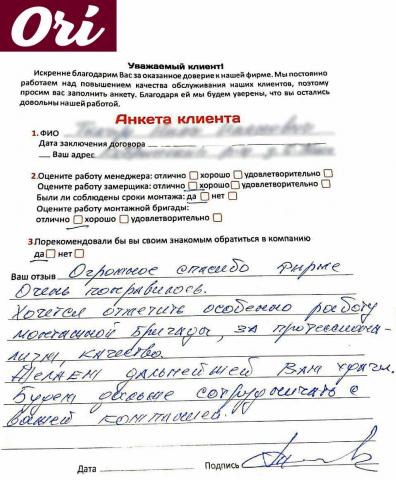 Ori
Уважаемый клиент!
Искренне благодарим Вас за оказанное доверие к нашей фирме. Мы постоянно
работаем над повышением качества обслуживания наших клиентов, поэтому
просим вас заполнить анкету. Благодаря ей мы будем уверены, что вы остались
довольны нашей работой.
Анкета клиента
1. ФИО
Дата заключения договора
Ваш адрес
2.Оцените работу менеджера: отлично хорошо удовлетворительно
Оцените работу замерщика: отлично хорошо удовлетворительно
Были ли соблюдены сроки монтажа: да нет
Оцените работу монтажной бригады:
отлично хорошо удовлетворительно
3.Порекомендовали бы вы своим знакомым обратиться в компанию
да нет
Ваш отзыв Огромное спасибо фирме
Очень понравилось.
Хочется отметить особенно работу
монтажной бригады, за профессиона-
лизм, качество.
Желаем дальнейшей Вам удачи.
Будем дальше сотрудничать с
вашей компанией.
Дата Подпись